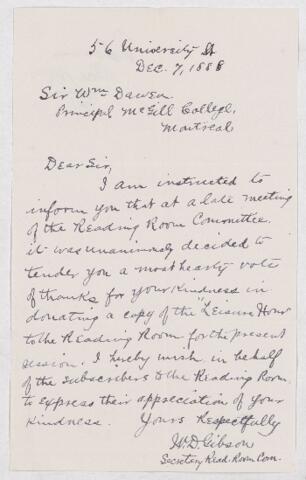 56 University St
Dec. 7, 1888
Sir Wm Dawson
Principal McGill College,
Montreal
Dear Sir,
I am instructed to
inform you that at a late meeting
of the Reading Room Committee.
it was unanimously decided to
tender you a most hearty vote
of thanks for your kindness in
donating a copy of the "Leisure Hour
to the Reading Room for the present
session. I hereby wish in behalf
of the subscribers to the Reading Room
to express their appreciation of your
kindness. Yours Respectfully
W. D. Gibson
Secretary Read. Room Com.